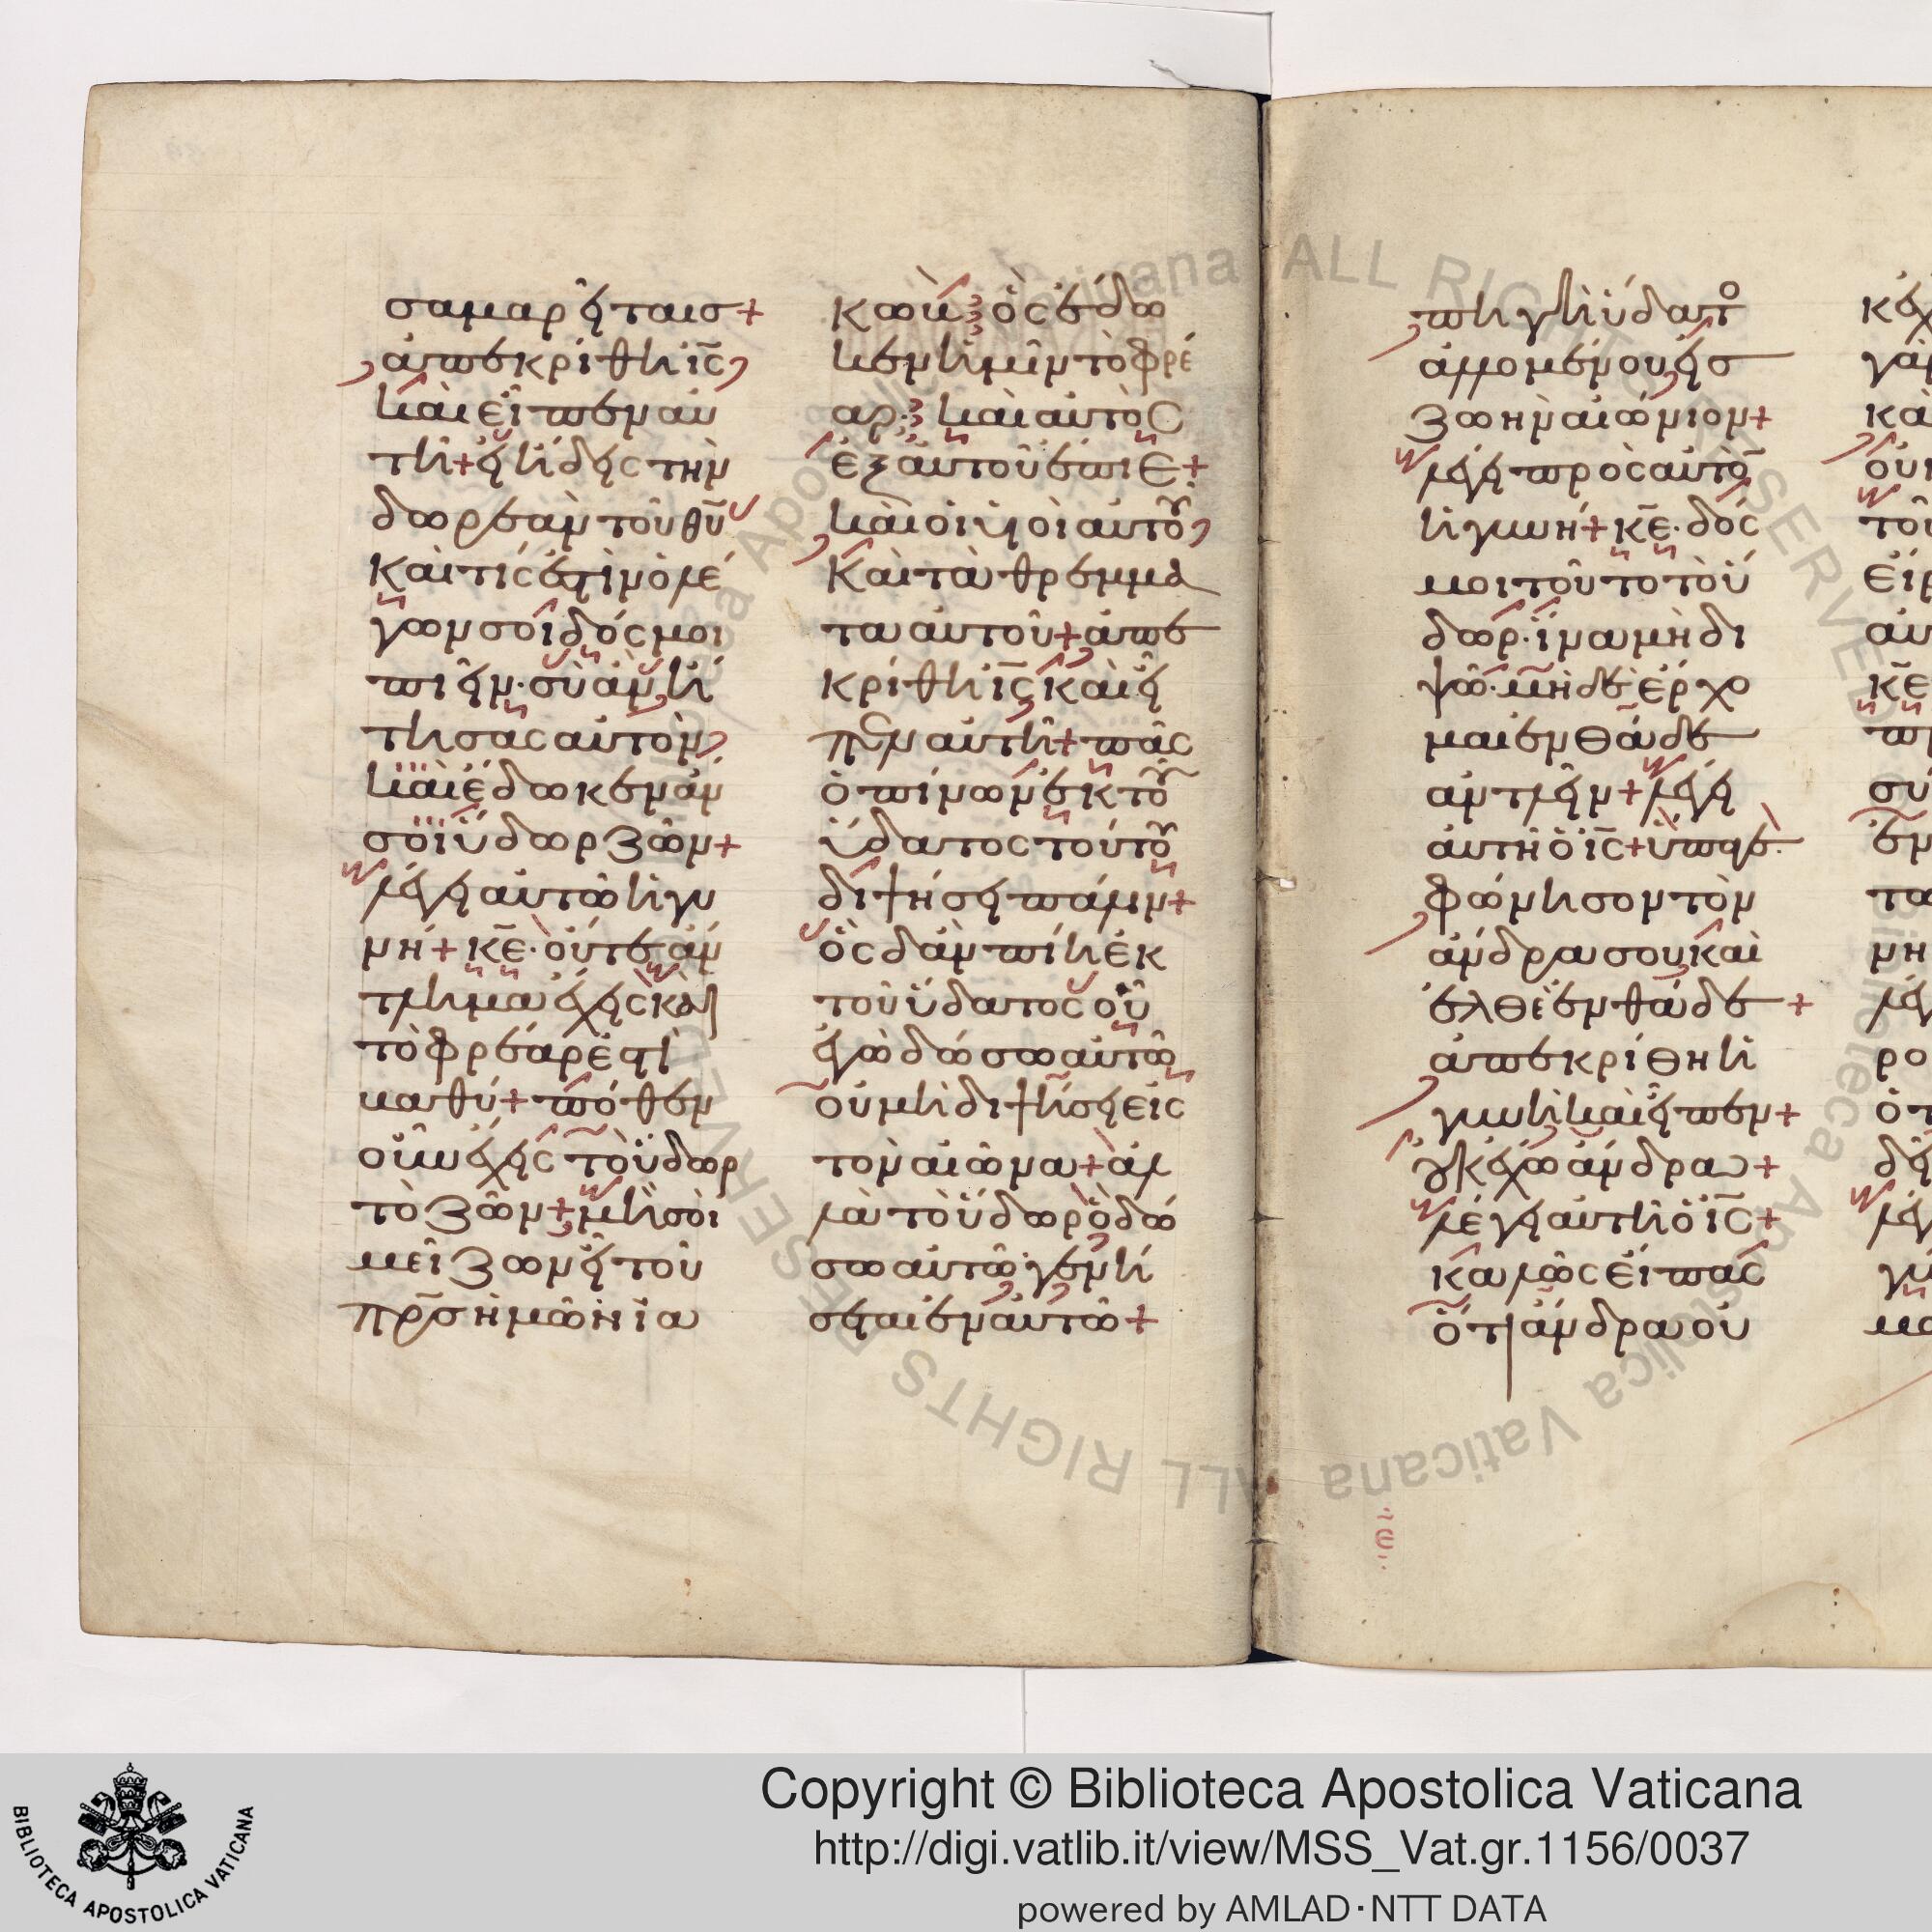 σαμαρείταισ+
ἀπεκρίθη ἰ̅ς̅
καὶ εἶπεν αὐ
τῆ+ εἰ ἤδεις τὴν
δωρεὰν τοῦ θ̅υ̅
καὶ τίς ἐστιν ὁ λέ
γων σοι δός μοι
πιεῖν· σὺ ἂν ἤ
τησας αὐτὸν
καὶ ἔδωκεν ἄν
σοι ὕδωρ ζῶν+
λέγει αὐτῶ ἡ γυ
νή+ κ̅ε̅· οὔτε ἄν
τλημα ἔχεις καὶ
τὸ φρέαρ ἐστὶ
βαθύ+ πόθεν
οὖν ἔχεις τὸ ὕδωρ
τὸ ζῶν+ μὴ σὺ
μείζων εἶ τοῦ
π̅ρ̅σ̅ ἡμῶν ἰα
κώβ ὃς ἔδω
κεν ἡμῖν τὸ φρέ
αρ· καὶ αὐτὸς
ἐξ αὐτοῦ ἔπιε+
καὶ οἱ υἱοὶ αὐτοῦ
καὶ τὰ θρέμμα
τα αὐτοῦ+ ἀπε
κρίθη ἰ̅ς̅ καὶ εἶ
πεν αὐτῆ+ πᾶς
ὁ πίνων ἐκ τοῦ
ὕδατος τούτου
διψήσει πάλιν+
ὃς δ' ἂν πίη ἐκ
τοῦ ὕδατος οὗ
ἐγὼ δώσω αὐτῶ
οὐ μὴ διψήσει εἰς
τὸν αἰῶνα+ ἀλ
λὰ τὸ ὕδωρ ὃ δώ
σω αὐτῶ· γενή
σεται ἐν αὐτῶ+
πηγὴ ὕδατο
ἁλλομένου εἰσ
ζωὴν αἰώνιον+
λέγει πρὸς αὐτὸ̅
ἡ γυνή+ κ̅ε̅· δός
μοι τοῦτο τὸ ὕ
δωρ· ἵνα μὴ δι
ψῶ· μηδὲ ἔρχο
μαι ἐνθάδε
ἀντλεῖν+ λέγει
αὐτῆ ὁ ἰ̅ς̅+ ὕπαγε·
φώνησον τὸν
ἄνδρα σου καὶ
ἐλθὲ ἐνθάδε+
ἀπεκρίθη ἡ
γυνὴ καὶ εἶπεν+
οὐκ ἔχω ἄνδρα+
λέγει αὐτῆ ὁ ἰ̅ς̅+
καλῶς εἶπας
ὅτι ἄνδρα οὐ
Copyright © Biblioteca Apostolica Vaticana
http://digi.vatlib.it/view/MSS_Vat.gr.1156/0037
powered by AMLAD·NTT DATA
BIBLIOTECA APOSTOLICA VATICANA